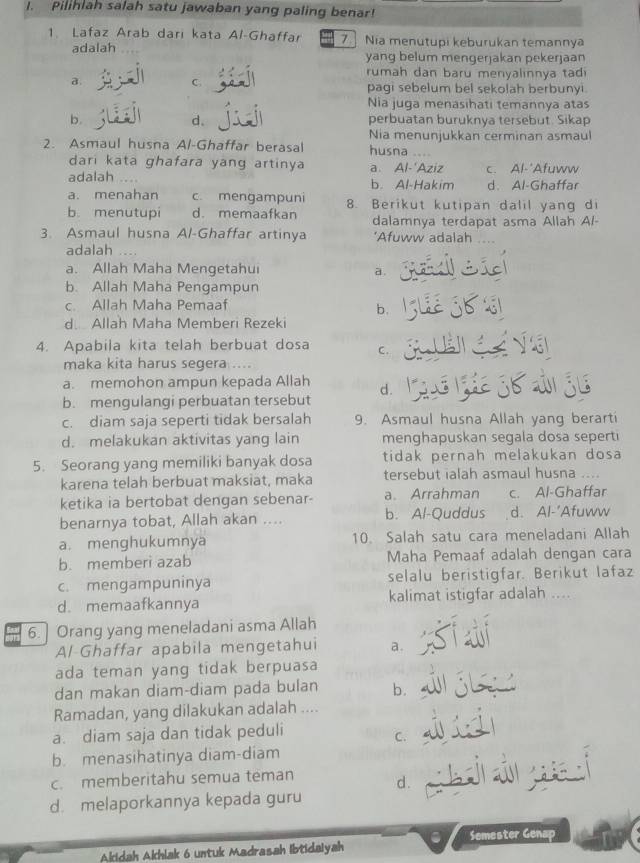 I. Pilihlah salah satu jawaban yang paling benar!
1. Lafaz Arab dari kata Al-Ghaffar
adalah ....
a. اَلْعَزِيْزُ c. اَلْغَفُوْرُ
b. اَلْغَفَّارُ d. اَلْعَدْلُ
2. Asmaul husna Al-Ghaffar berasal
dari kata ghafara yang artinya
adalah ....
a. menahan c. mengampuni
b. menutupi d. memaafkan
3. Asmaul husna Al-Ghaffar artinya
adalah ....
a. Allah Maha Mengetahui
b. Allah Maha Pengampun
c. Allah Maha Pemaaf
d. Allah Maha Memberi Rezeki
4. Apabila kita telah berbuat dosa
maka kita harus segera ....
a. memohon ampun kepada Allah
b. mengulangi perbuatan tersebut
c. diam saja seperti tidak bersalah
d. melakukan aktivitas yang lain
5. Seorang yang memiliki banyak dosa
karena telah berbuat maksiat, maka
ketika ia bertobat dengan sebenar-
benarnya tobat, Allah akan ....
a. menghukumnya
b. memberi azab
c. mengampuninya
d. memaafkannya
6. Orang yang meneladani asma Allah
Al-Ghaffar apabila mengetahui
ada teman yang tidak berpuasa
dan makan diam-diam pada bulan
Ramadan, yang dilakukan adalah ....
a. diam saja dan tidak peduli
b. menasihatinya diam-diam
c. memberitahu semua teman
d. melaporkannya kepada guru
7. Nia menutupi keburukan temannya
yang belum mengerjakan pekerjaan
rumah dan baru menyalinnya tadi
pagi sebelum bel sekolah berbunyi.
Nia juga menasihati temannya atas
perbuatan buruknya tersebut. Sikap
Nia menunjukkan cerminan asmaul
husna ....
a. Al-‘Aziz c. Al-‘Afuww
b. Al-Hakim d. Al-Ghaffar
8. Berikut kutipan dalil yang di
dalamnya terdapat asma Allah Al-
‘Afuww adalah ....
a. اُعِدَّتْ لِلْمُتَّقِيْنَ
b. اِنَّهٗ كَانَ غَفَّارًا
c. اِنَّهٗ لَا يُحِبُّ الظّٰلِمِيْنَ
d. فَاِنَّ اللّٰهَ كَانَ عَفُوًّا قَدِيْرًا
9. Asmaul husna Allah yang berarti
menghapuskan segala dosa seperti
tidak pernah melakukan dosa
tersebut ialah asmaul husna ....
a. Arrahman c. Al-Ghaffar
b. Al-Quddus d. Al-‘Afuww
10. Salah satu cara meneladani Allah
Maha Pemaaf adalah dengan cara
selalu beristigfar. Berikut lafaz
kalimat istigfar adalah ....
a. اَللّٰهُ اَكْبَرُ
b. سُبْحَانَ اللّٰهِ
c. اَلْحَمْدُ لِلّٰهِ
d. اَسْتَغْفِرُ اللّٰهَ الْعَظِيْمَ
Akidah Akhlak 6 untuk Madrasah Ibtidaiyah
Semester Genap